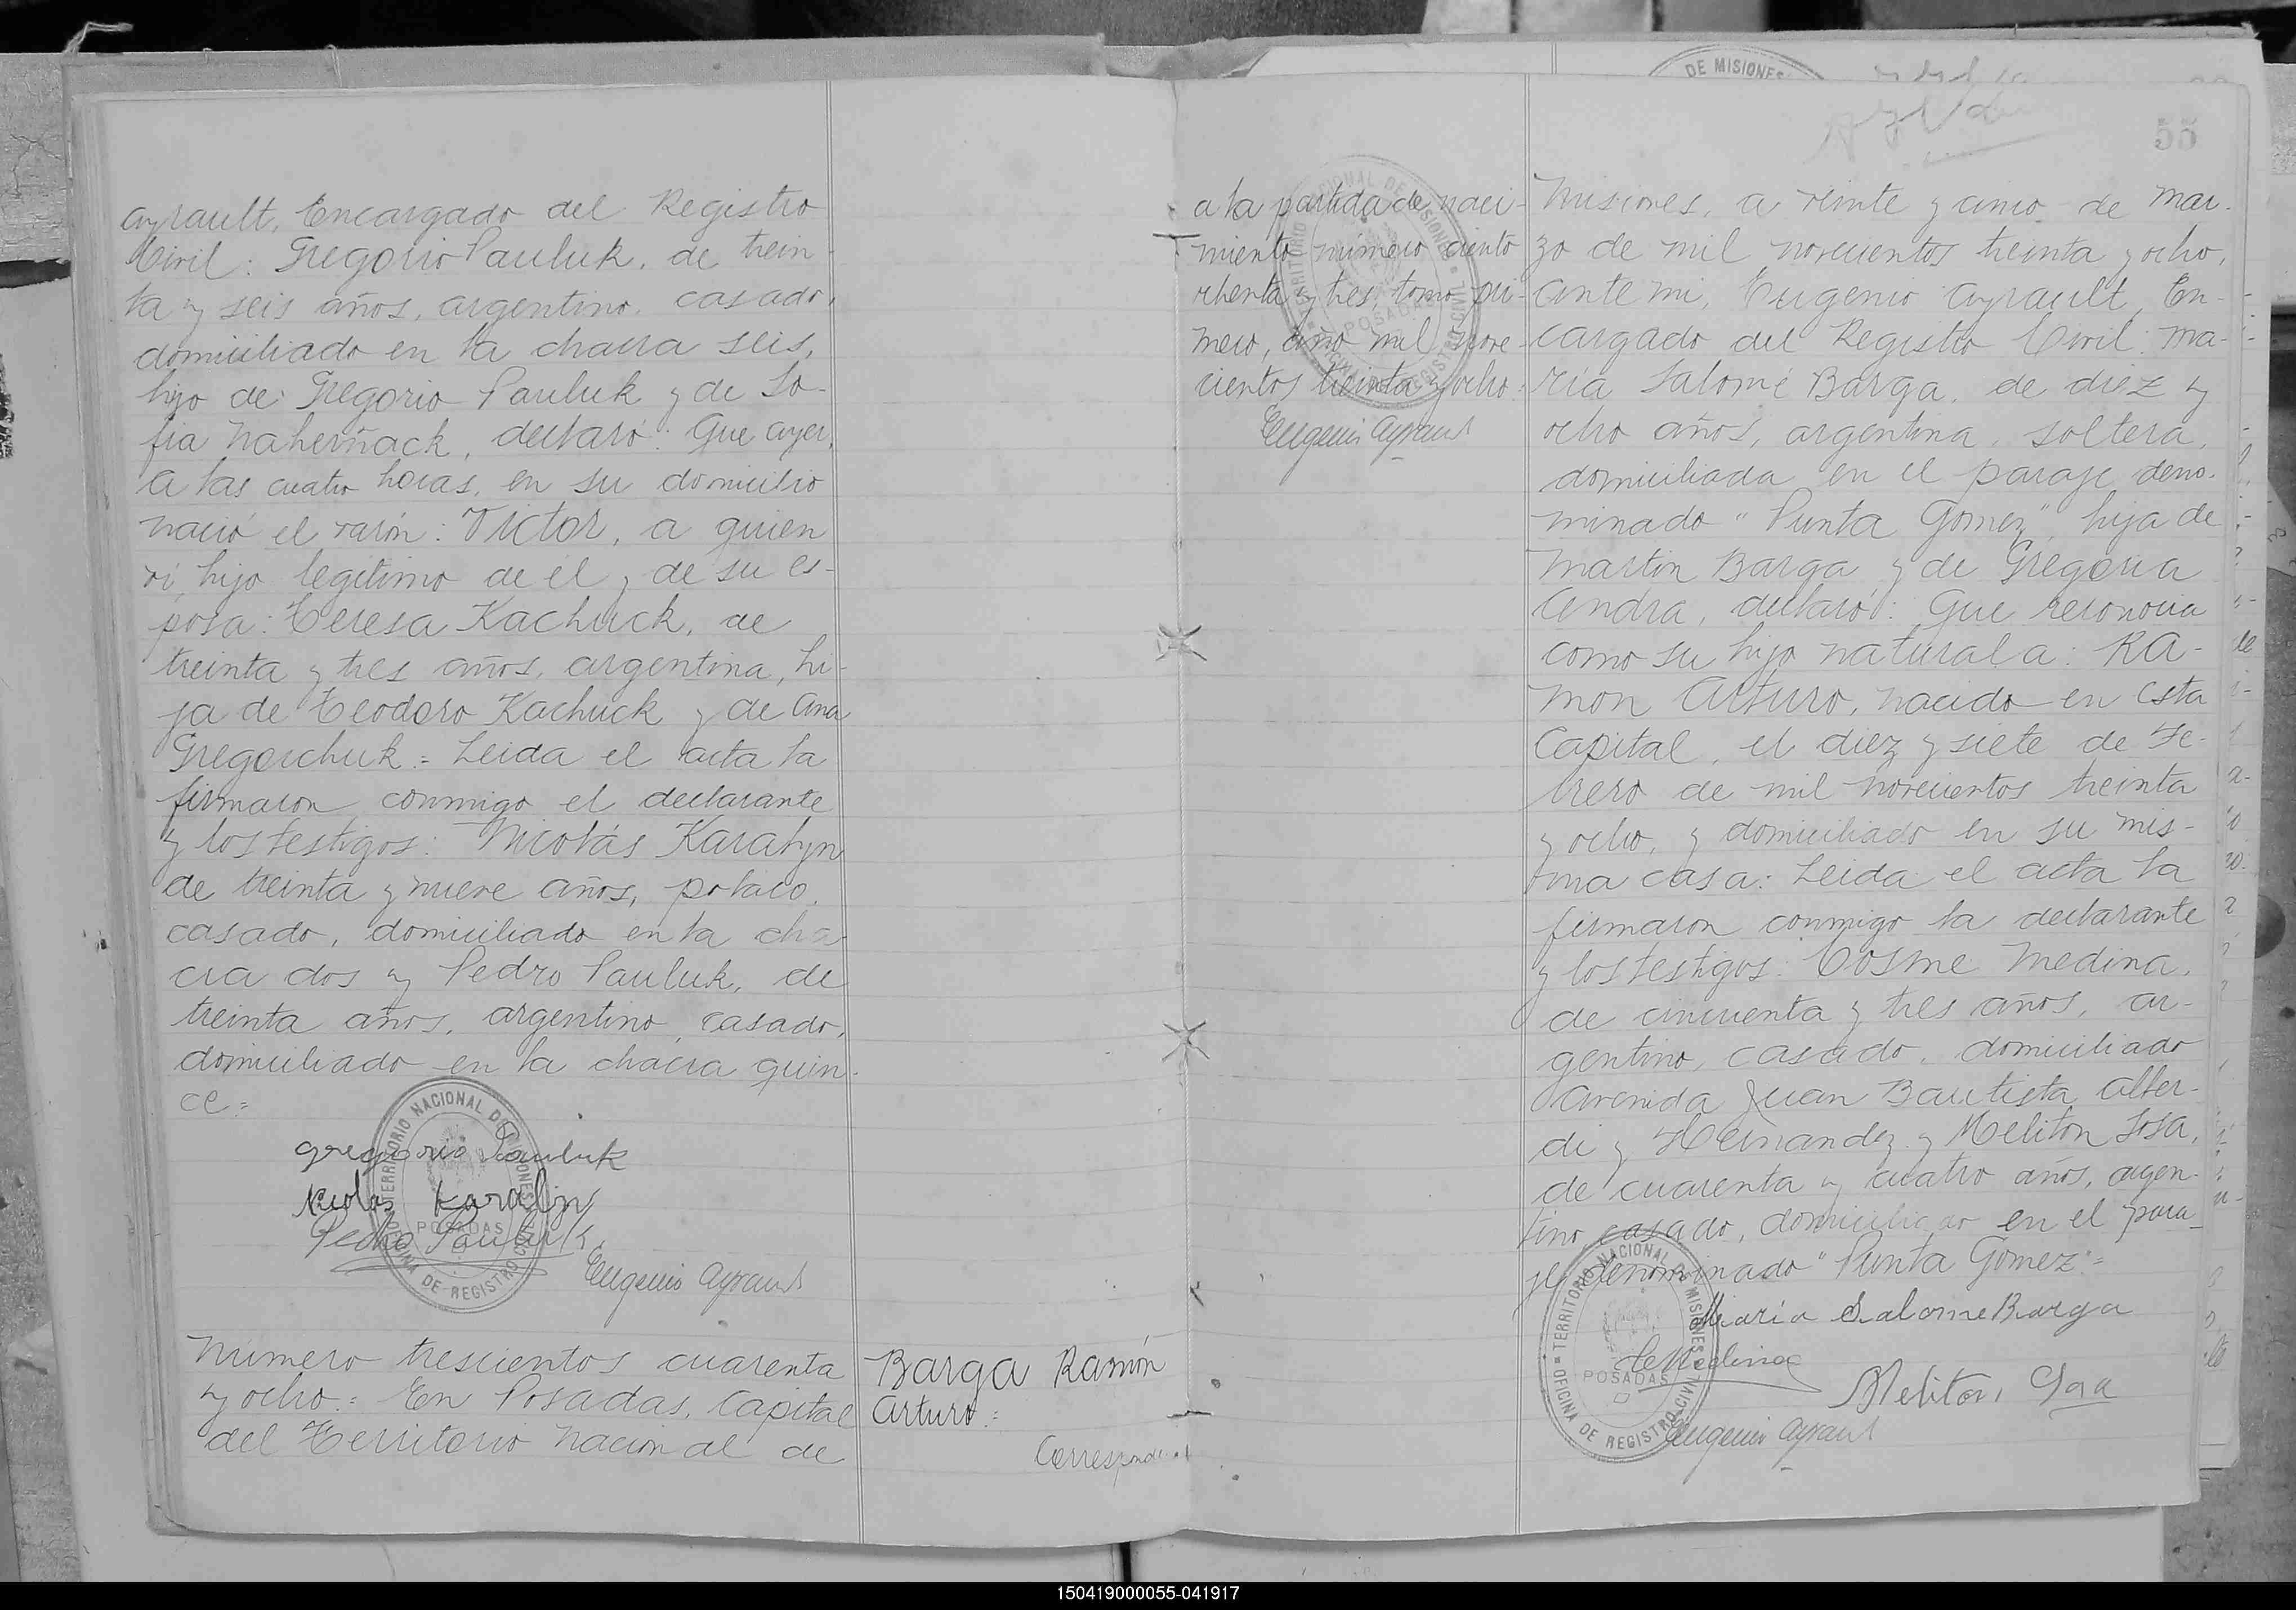 Ayrault, Encargado del Registro
Civil: Gregorio Pauluk, de trein-
ta y seis años, argentino, casado,
domiciliado en la chacra seis,
hijo de Gregorio Pauluk y de So-
fia Naherñack, declaró: Que ayer,
a las cuatro horas, en su domicilio
nació el varón: Victor, a quien
vi, hijo legitimo de él y de su es-
posa: Teresa Kachuck, de
treinta y tres años, argentina, hi-
ja de Teodoro Kachuck y de Ana
Gregorchuk.= Leida el acta la
firmaron conmigo el declarante
y los testigos: Nicolás Karalyn
de treinta y nueve años, polaco,
casado, domiciliado en la cha-
cra dos y Pedro Pauluk, de
treinta años, argentino, casado,
domiciliado en la chacra quin-
ce.=
Gregorio Pauluk
Nicolas Karalyn
Pedro Pauluk
Eugenio Ayrault
TERRITORIO NACIONAL DE MISIONES
POSADAS
OFICINA DE REGISTRO CIVIL
Número trescientos cuarenta
y ocho.= En Posadas, Capital
del Territorio Nacional de
Barga Ramón
Arturo.=
Corresponde
a la partida de naci-
miento número ciento
ochenta y tres, tomo pri-
mero, año mil nove-
cientos treinta y ocho.=
Eugenio Ayrault
TERRITORIO NACIONAL DE MISIONES
POSADAS
OFICINA DE REGISTRO CIVIL
DE MISIONES
55
Misiones, a veinte y cinco de mar-
zo de mil novecientos treinta y ocho,
ante mi, Eugenio Ayrault, En-
cargado del Registro Civil: Ma-
ría Salomé Barga, de diez y
ocho años, argentina, soltera,
domiciliada en el paraje deno-
minado "Punta Gomez", hija de
Martin Barga y de Gregoria
Cendra, declaró: Que reconocia
como su hijo natural a: Ra-
mon Arturo, nacido en esta
Capital, el diez y siete de Fe-
brero de mil novecientos treinta
y ocho, y domiciliado en su mis-
ma casa: Leida el acta la
firmaron conmigo la declarante
y los testigos: Cosme Medina,
de cincuenta y tres años, ar-
gentino, casado, domiciliado
Avenida Juan Bautista Alber-
di y Hernandez y Meliton Sosa,
de cuarenta y cuatro años, argen-
tino, casado, domiciliado en el para-
je denominado "Punta Gomez".=
María Salome Barga
C Medina
Meliton Sosa
Eugenio Ayrault
TERRITORIO NACIONAL DE MISIONES
POSADAS
OFICINA DE REGISTRO CIVIL
150419000055-041917